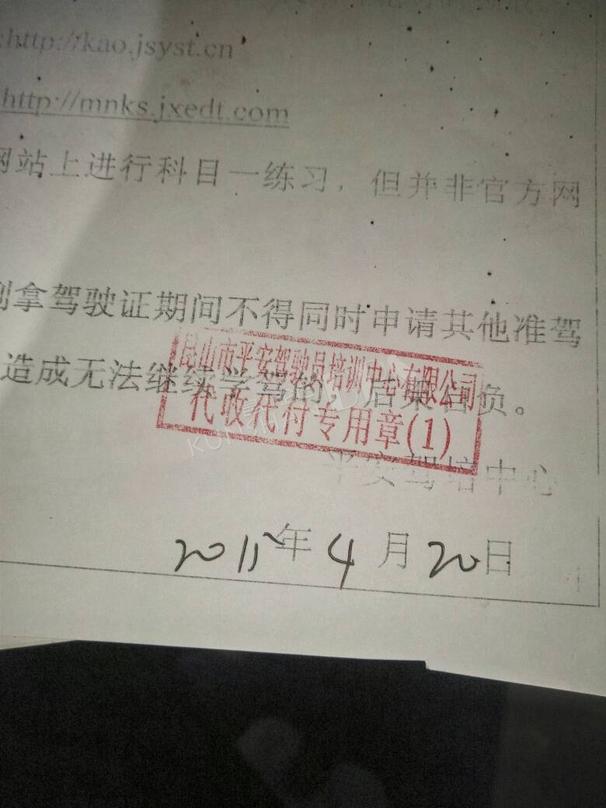 :http://kao.jsyst.cn
http://mnks.jxedt.com
网站上进行科目一练习，但并非官方网
拿驾驶证期间不得同时申请其他准驾
造成无法继续学驾的，后果自负。
昆山市平安驾驶员培训中心有限公司
代收代付专用章(1)
平安驾培中心
2015年4月20日